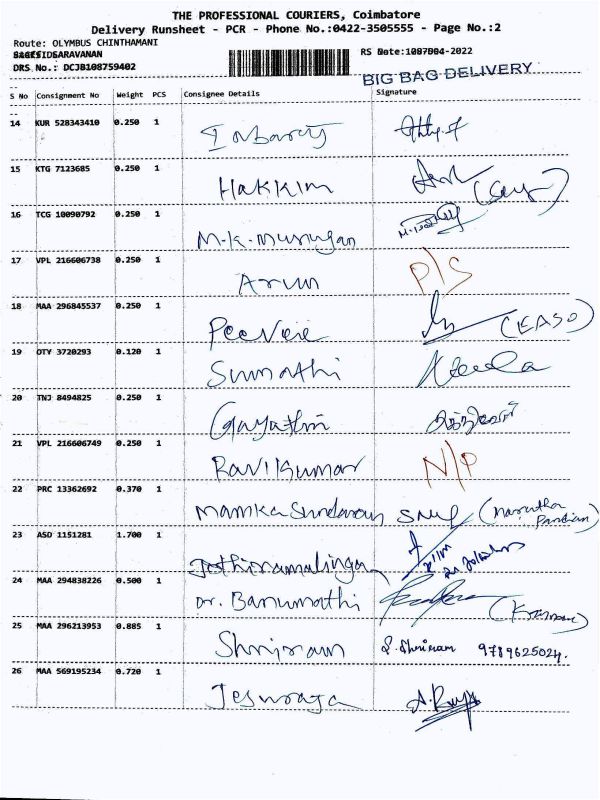 THE PROFESSIONAL COURIERS, Coimbatore
Delivery Runsheet - PCR - Phone No.:0422-3505555 - Page No.:2
Route: OLYMBUS CHINTHAMANI
RS Date:
DRS No.: DCJB108759402
BIG BAG DELIVERY
S No Consignment No Weight PCS Consignee Details Signature
14 KUR 528343410 0.250 1
15 KTG 7123685 0.250 1 Hakkim
16 TCG 10090792 0.250 1 M.K. Murugan
17 VPL 216606738 0.250 1 Arun P/S
18 MAA 296845537 0.250 1 (EASO)
19 OTY 3720293 0.120 1 Sumathi
20 TNJ 8494825 0.250 1 Gayathri
21 VPL 216606749 0.250 1 Ravikumar N/P
22 PRC 13362692 0.370 1
23 ASD 1151281 1.700 1 Jothiramalingam
24 MAA 294838226 0.500 1 Dr. Banumathi
25 MAA 296213953 0.885 1 Shriram S. Shriram 9789625024.
26 MAA 569195234 0.720 1 Jesuraja